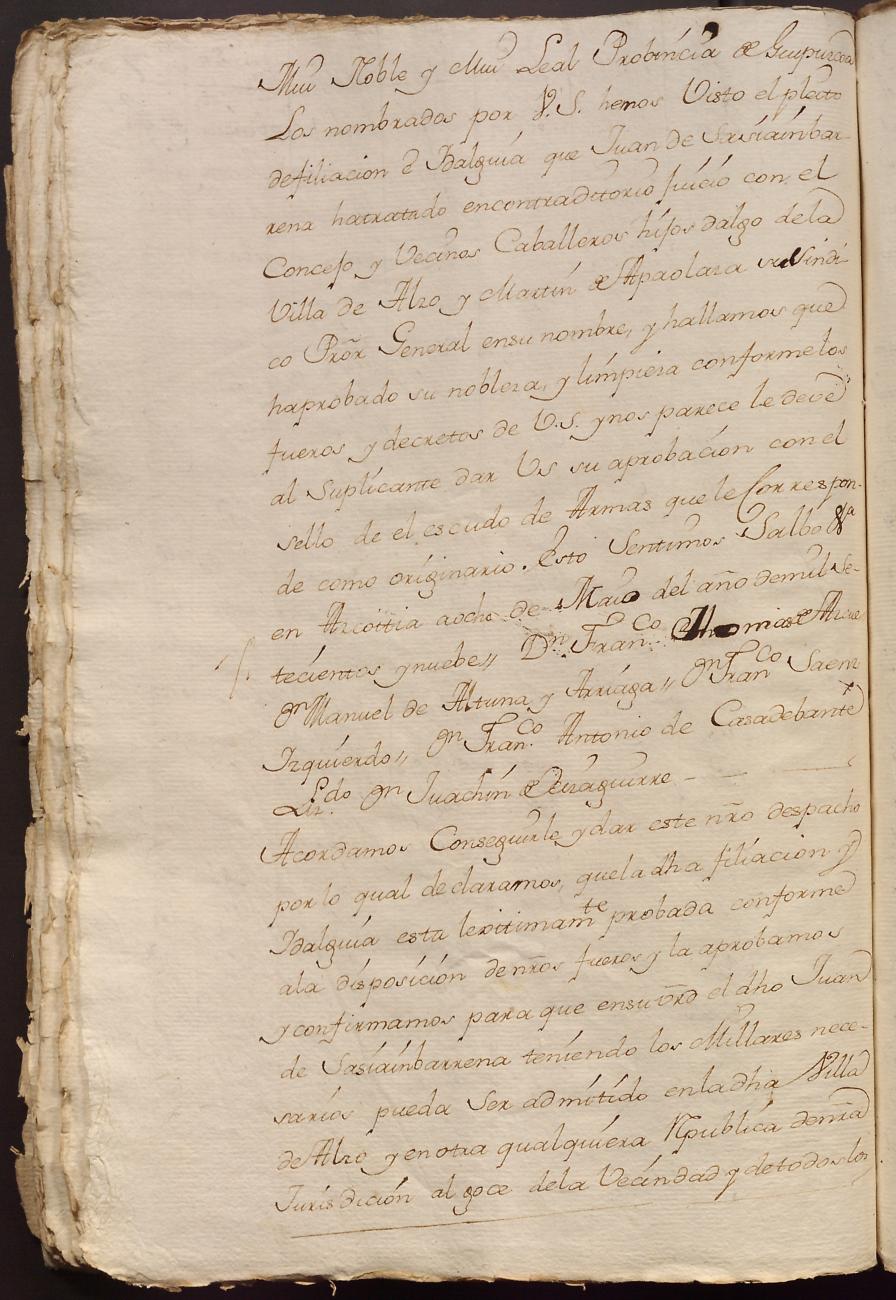 Mui Noble y Mui Leal Probincia de Guipuzcoa
Los nombrados por V.S. hemos Visto el pleito
defiliacion e Idalguia que Juan de Sasiainbar-
rena hatratado encontraditorio Juicio con el
Concejo y Vecinos Caballeros hijos dalgo dela
Villa de Alzo y Martin de Apaolaza su Sindi-
co Pror General ensu nombre, y hallamos que
haprobado su nobleza, y limpieza conforme los
fueros y decretos de V.S. ynos parece le deve
al Suplicante dar Vs su aprobacion con el
sello de el escudo de Armas que le Correspon-
de como originario. Esto Sentimos Salbo &a
en Azcoitia aocho de Maio del año demil Se-
tecientos ynuebe,, Dn Franco de
Dn Manuel de Altuna y Arriaga,, Dn Franco Saenz
Izquierdo,, Dn Franco Antonio de Casadebante
Lizdo Dn Juachin de
Acordamos Conseguirle, ydar este nro despacho
por lo qual declaramos, quela dha filiacion y
Idalguia esta lexitimamte probada conforme
ala disposicion denros fueros y la aprobamos
yconfirmamos para que ensu vrd el dho Juan
de Sasiainbarrena teniendo los Millares nece-
sarios pueda Ser admitido enladha Villa
de Alzo yenotra qualquiera Republica denra
Jurisdicion al goce dela Vecindad y detodos los